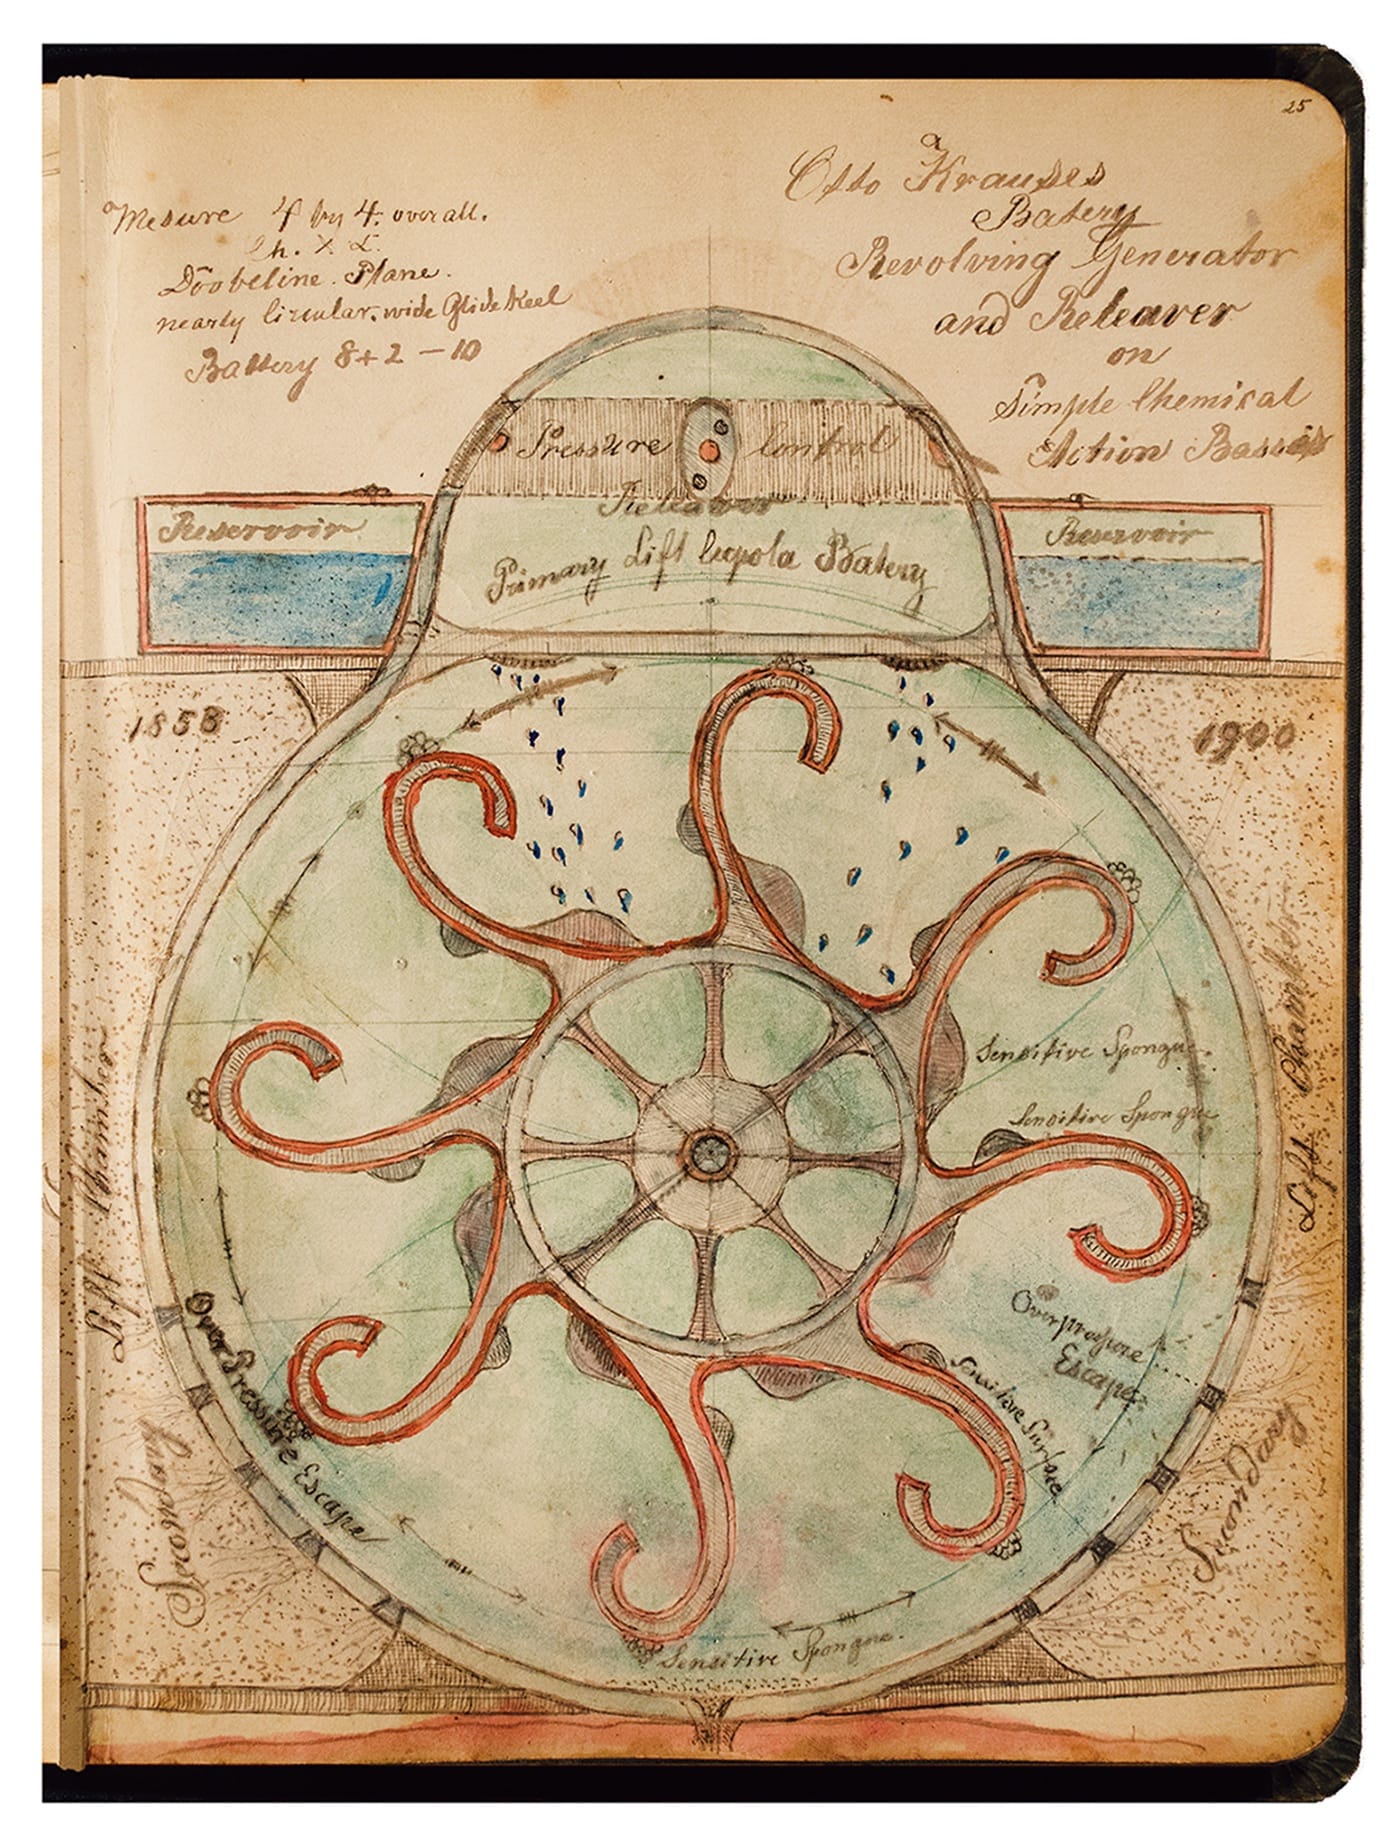 25
Mesure 4 by 4. over all.
Doobeline. Plane.
nearly Circular. wide Glide Keel
Battery 8+2 - 10
Otto Krauses
Batery
Revolving Generator
and Releaver
on
Simple Chemical
Action Bassis
Pressure Control
Releaver
Primary Lift Cupola Batery
Reservoir
Reservoir
1858
1900
Sensitive Spongue.
Sensitive Spongue
Lift Chamber
Lift Chamber
Over Pressure Escape
Overpressure
Escape.
Sensitive Surface
Secondary
Sensitive Spongue.